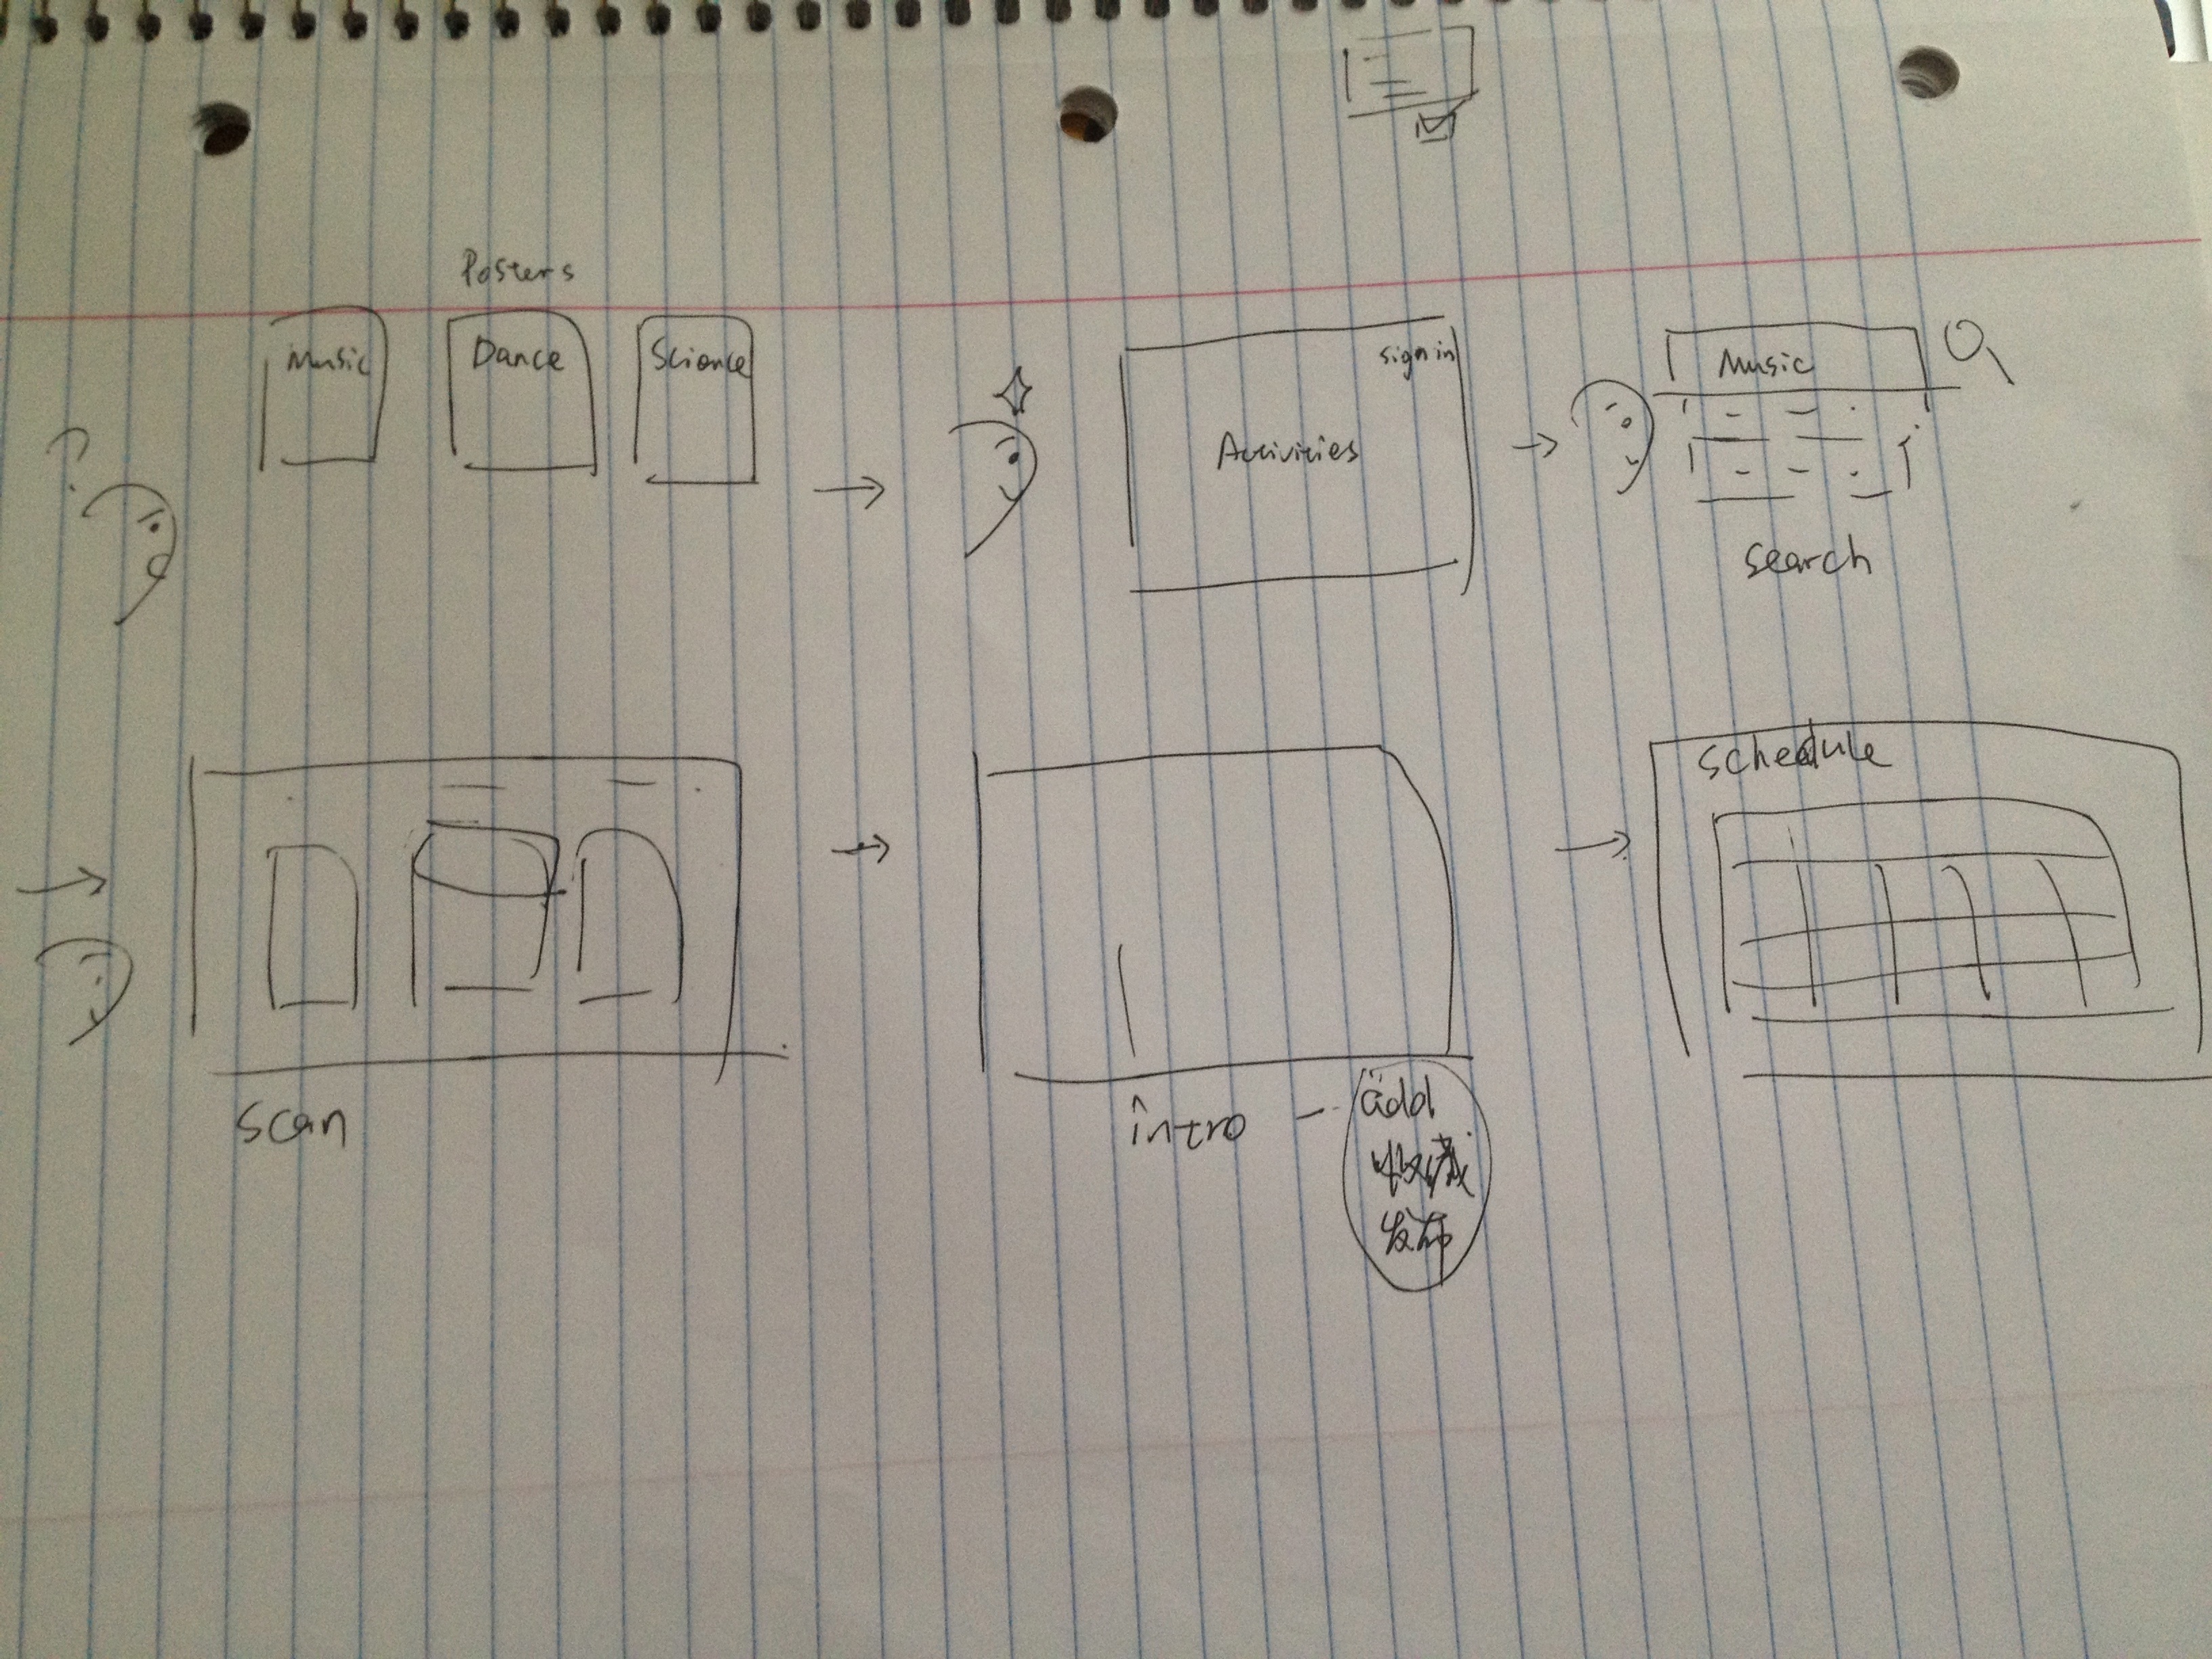 Posters
Music
Dance
Science
sign in
Activities
Music
search
scan
intro
add
收藏
发布
schedule